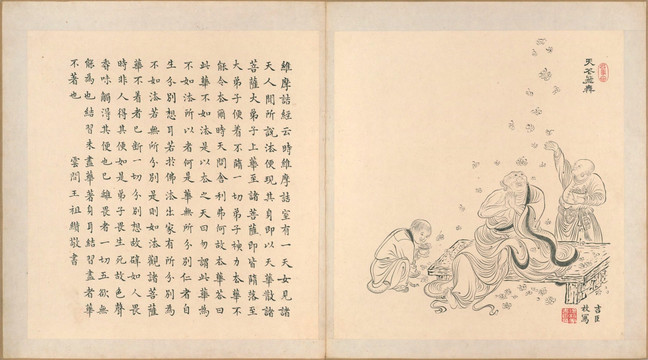 維摩詰經云時維摩詰室有一天女見諸
天人聞所說法便現其身即以天華散諸
菩薩大弟子上華至諸菩薩即皆墮落至
大弟子便著不墮一切弟子神力去華不
能令去爾時天問舍利弗何故去華答曰
此華不如法是以去之天曰勿謂此華為
不如法所以者何是華無所分別仁者自
生分別想耳若於佛法出家有所分別為
不如法若無所分別是則如法觀諸菩薩
華不著者已斷一切分別想故譬如人畏
時非人得其便如是弟子畏生死故色聲
香味觸得其便也已離畏者一切五欲無
能為也結習未盡華著身耳結習盡者華
不著也 雲間王祖纘敬書
吉臣